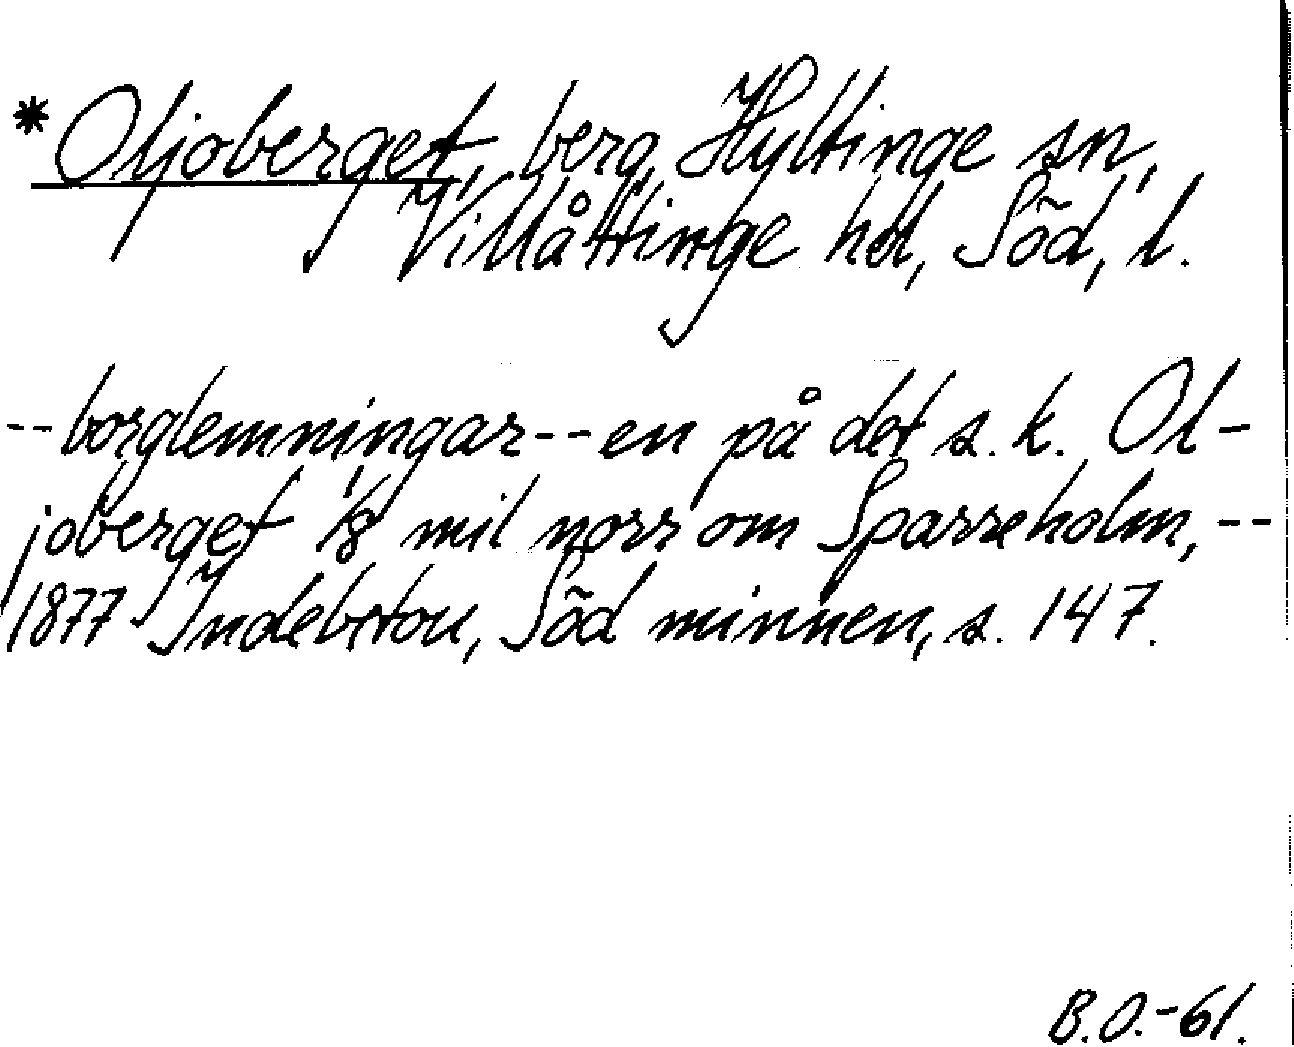 *Oljoberget, berg, Hyltinge sn,
Villåttinge hd, Söd, l.
--borglemningar--en på det s.k. Ol-
joberget 1/8 mil norr om Sparreholm,--
1877 Indebetou, Söd minnen, s. 147.
B.O.-61.